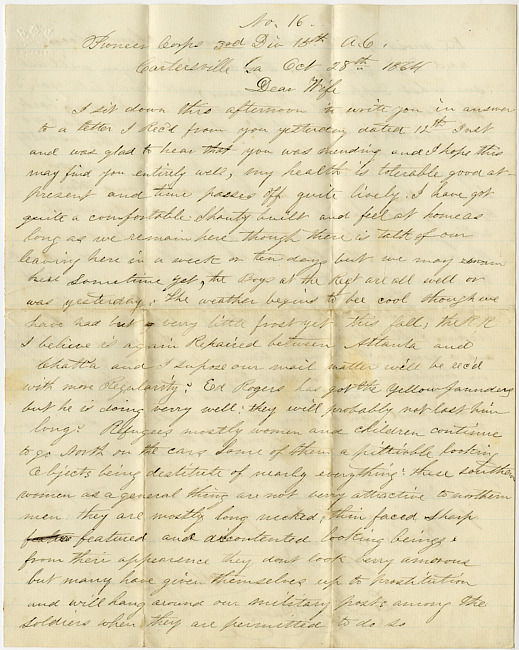 No. 16.
Pioneer Corps 3rd Div 15th A.C.
Cartersville Ga Oct 28th 1864
Dear Wife
I sit down this afternoon to write you in answer
to a letter I Rec'd from you yesterday dated 12th Inst
and was glad to hear that you was mending and I hope this
may find you entirely well, my health is tolerable good at
present and time passes off quite lively. I have got
quite a comfortable Shanty built and feel at home as
long as we remain here though there is talk of our
leaving here in a week or ten days but we may remain
here Sometime yet, the Boys at the Regt are all well or
was yesterday. The weather begins to be cool though we
have had but a verry little frost yet this fall; the R R
I believe is again Repaired between Atlanta and
Chatta and I supose our mail matter will be rec'd
with more Regularity; Ed Rogers has got the Yellow Jaunders
but he is doing verry well; they will probably not last him
long; Refugees mostly women and children continue
to go North on the cars, Some of them a pittiable looking
Objects being destitute of nearly everything; these southern
women as a general thing are not verry attractive to northern
men they are mostly long necked, thin faced Sharp
featured and discontented looking beings.
from there appearance they dont look verry amorous
but many have given themselves up to prostitution
and will hang around our military posts among the
soldiers when they are permitted to do so